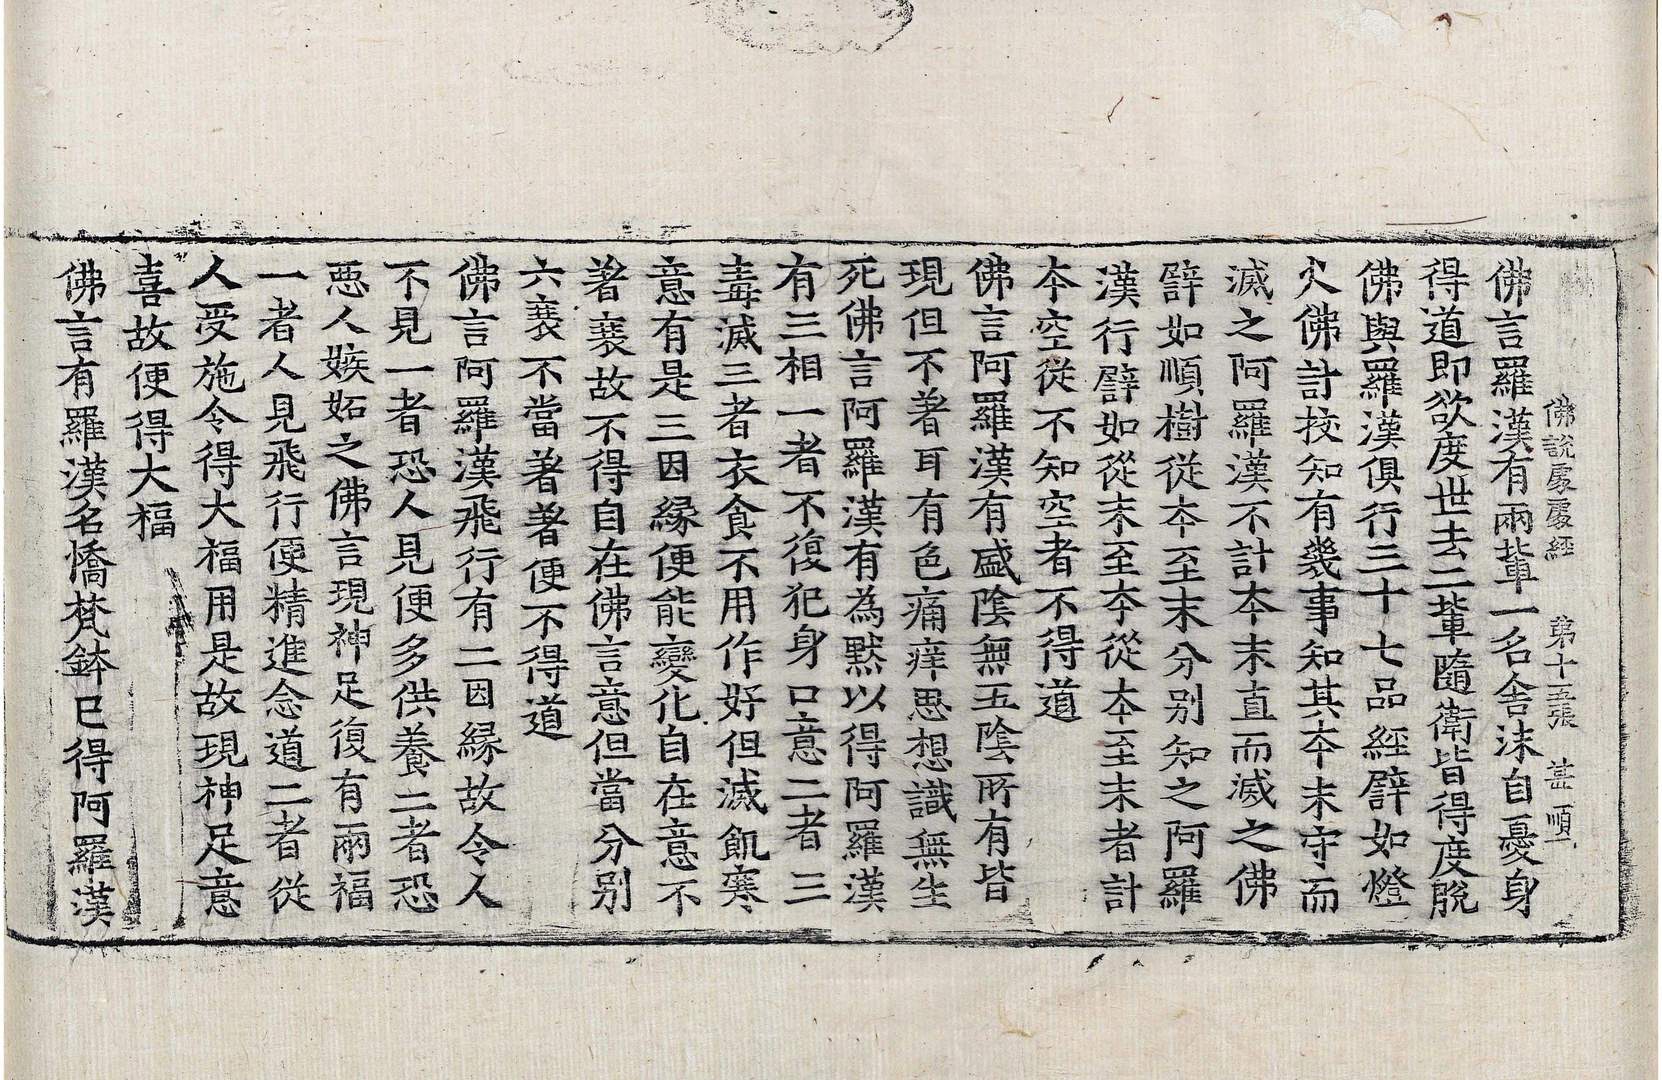 佛說處處經　第十五張　甚　順一
佛言羅漢有兩輩一名舍沫自憂身
得道即欲度世去二輩隨衛皆得度脫
佛與羅漢俱行三十七品經譬如燈
火佛計挍知有幾事知其夲末守而
滅之阿羅漢不計夲末直而滅之佛
譬如順樹從夲至末分别知之阿羅
漢行譬如從末至夲從夲至末者計
夲空從不知空者不得道
佛言阿羅漢有盛陰無五陰所有皆
現但不著耳有色痛痒思想識無生
死佛言阿羅漢有為黙以得阿羅漢
有三相一者不復犯身口意二者三
毒滅三者衣食不用作好但滅飢寒
意有是三因緣便能變化自在意不
著衰故不得自在佛言意但當分别
六衰不當著著便不得道
佛言阿羅漢飛行有二因緣故令人
不見一者恐人見便多供養二者恐
惡人嫉妬之佛言現神足復有兩福
一者人見飛行便精進念道二者從
人受施令得大福用是故現神足意
喜故便得大福
佛言有羅漢名憍梵鉢已得阿羅漢